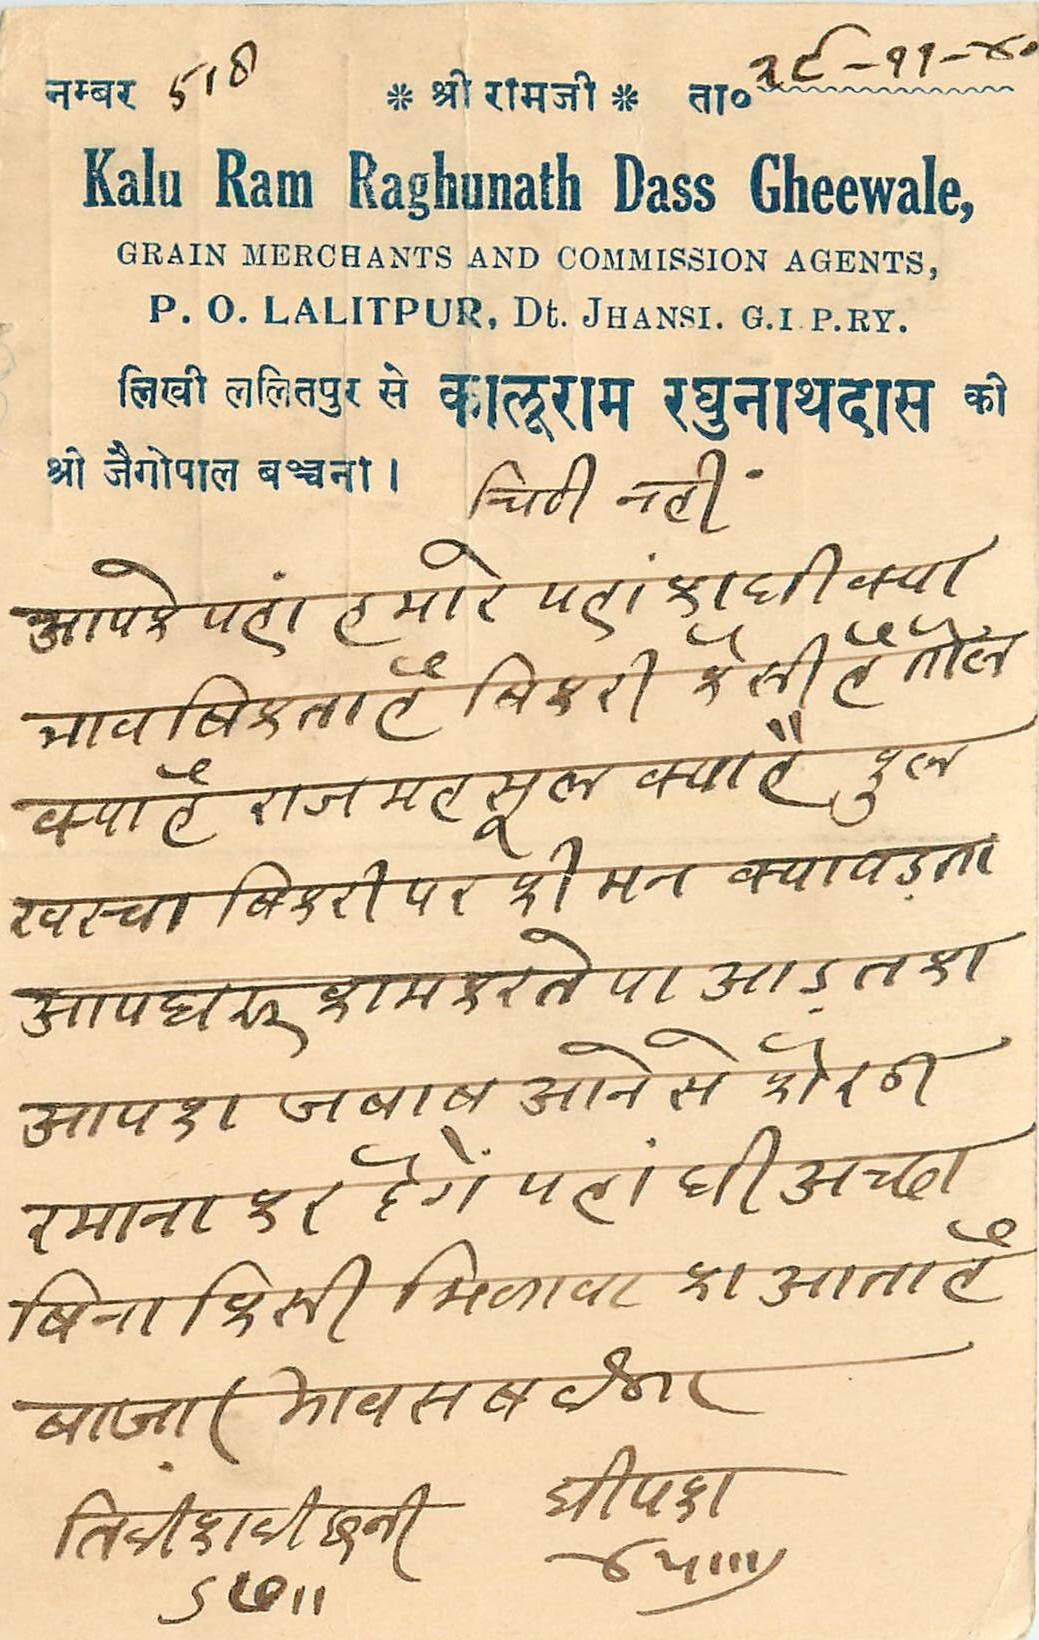 नम्बर 518 * श्री रामजी * ता० २९-११-४०
Kalu Ram Raghunath Dass Gheewale,
GRAIN MERCHANTS AND COMMISSION AGENTS,
P. O. LALITPUR, Dt. JHANSI. G.I.P.RY.
लिखी ललितपुर से कालूराम रघुनाथदास की
श्री जैगोपाल बञ्चना ।
चिठी नहीं
आपके यहां हमारे यहां का घी क्या
भाव बिकता है बिकरी कैसी है तौल
क्या है राज महसूल क्या है कुल
खरचा बिकरी पर फी मन क्या पड़ता
आप घरू काम करते या आड़त का
आपका जबाब आने से
रमाना कर देंगें यहां घी अच्छा
बिना किसी मिलावट का आता है
बाजार भाव सब
घी पका
४५।।।)